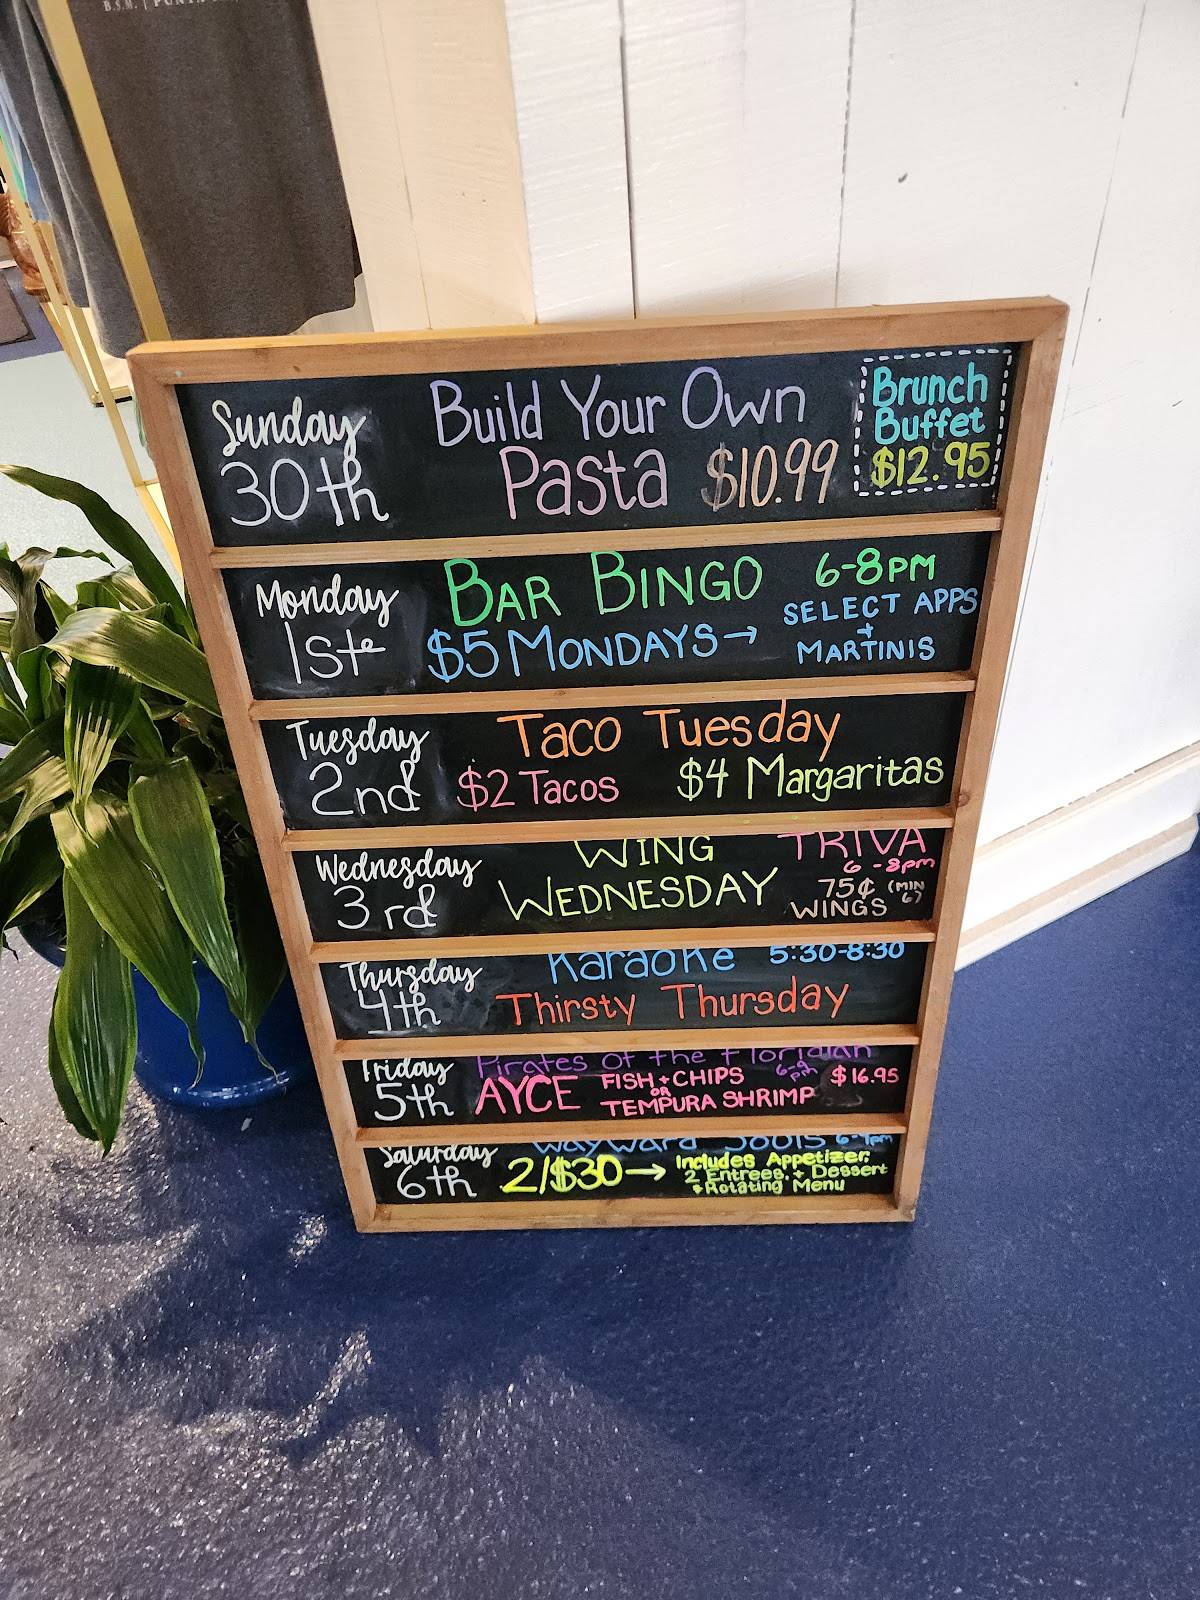 B.S.M. |
Sunday
30th
Build Your Own
Pasta $10.99
Brunch
Buffet
$12.95
Monday
1st
BAR BINGO 6-8PM
$5 MONDAYS→
SELECT APPS
+
MARTINIS
Tuesday
2nd
Taco Tuesday
$2 Tacos $4 Margaritas
Wednesday
3rd
WING
WEDNESDAY
TRIVA
6-8pm
75¢ (MIN 6)
WINGS
Thursday
4th
Karaoke 5:30-8:30
Thirsty Thursday
Friday
5th
Pirates of the Floridian
6-9 pm
AYCE
FISH + CHIPS
OR
TEMPURA SHRIMP
$16.95
Saturday
6th
Wayward Souls 6-9pm
2/$30→
Includes Appetizer,
2 Entrees, + Dessert
*Rotating Menu